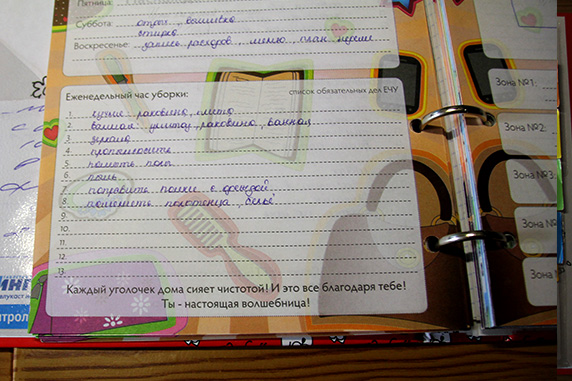 Пятница:
Суббота: отдых, вышивка
стирка
Воскресенье: запись расходов, меню,
Еженедельный час уборки: список обязательных дел ЕЧУ
1. кухня: раковина, плита
2. ванная: унитаз, раковина, ванная
3. зеркала
4. пропылесосить
5. помыть пол
6. пыль
7. поправить полки с одеждой
8. поменять полотенца, бельё
9.
10.
11.
12.
13.
Каждый уголочек дома сияет чистотой! И это все благодаря тебе!
Ты - настоящая волшебница!
Зона №1:
Зона №2:
Зона №3
Зона №